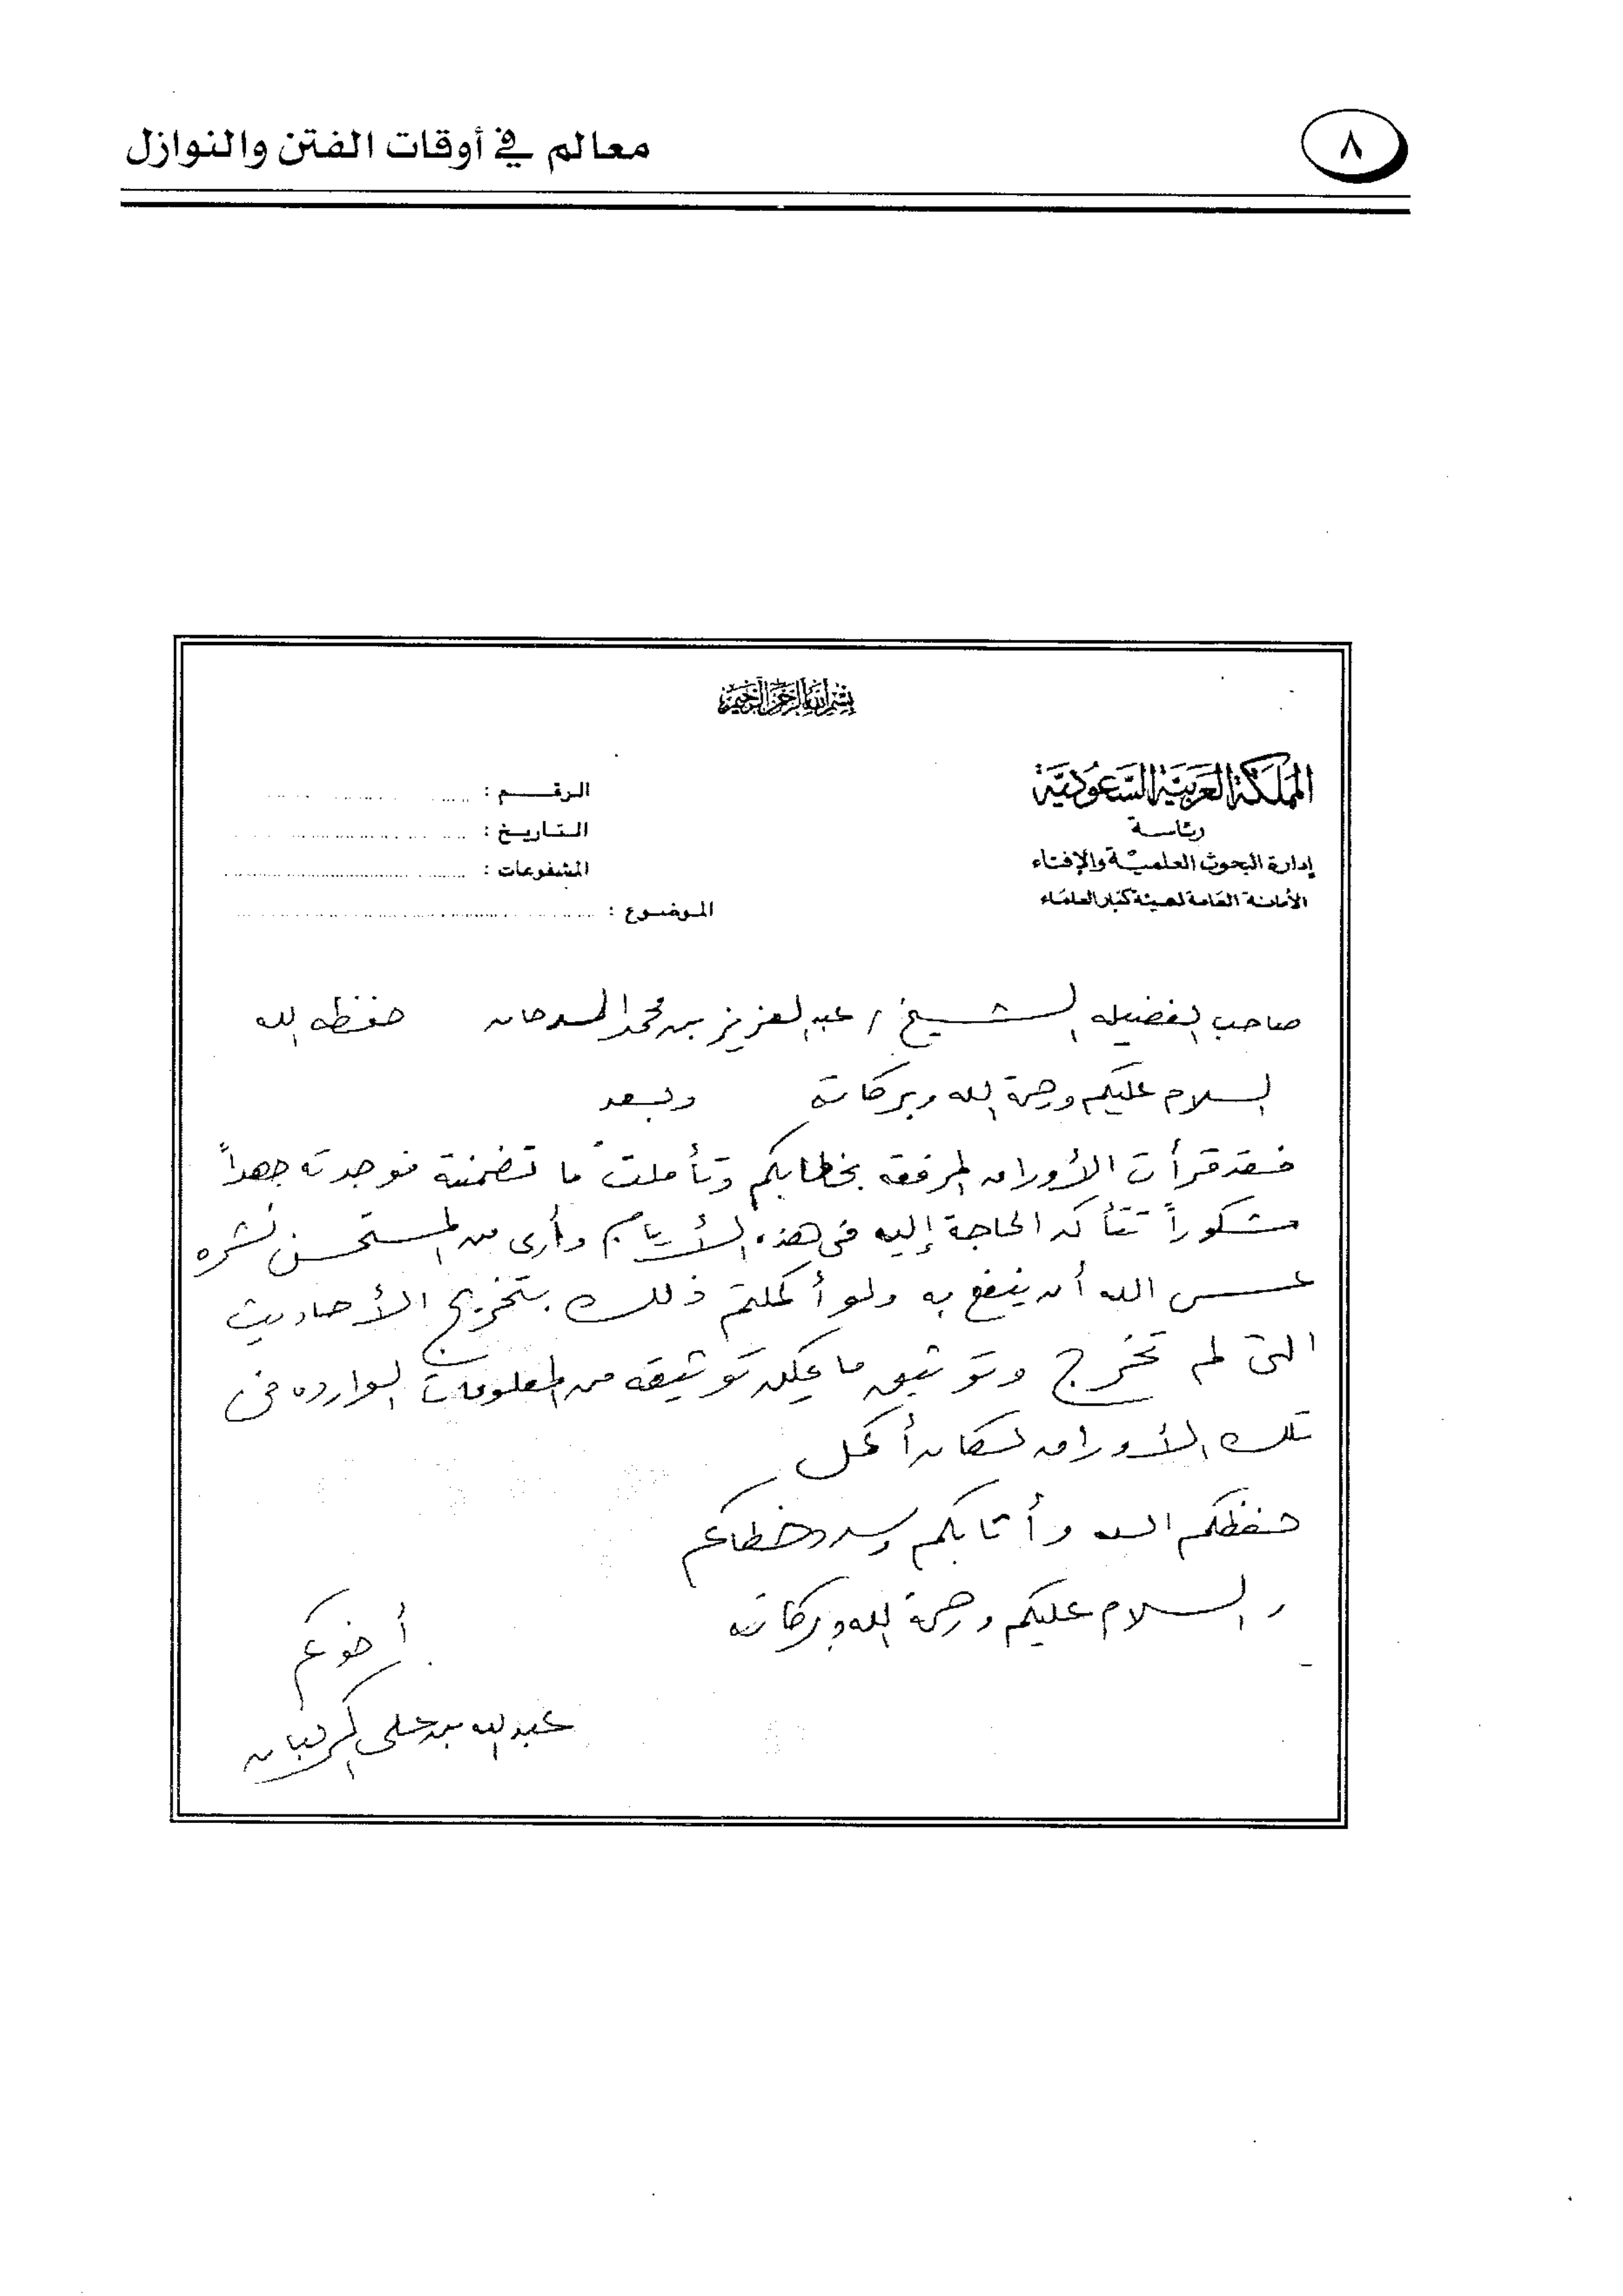 معالم في أوقات الفتن والنوازل
٨
بسم الله الرحمن الرحيم
المملكة العربية السعودية
رئاسة
إدارة البحوث العلمية والإفتاء
الأمانة العامة لهيئة كبار العلماء
الرقـــــم :
التـاريـخ :
المشفوعات :
الموضـوع :
صاحب الفضيله الشيخ / عبدالعزيز بن محمد السدحان حفظه الله
السلام عليكم ورحمة الله وبركاته وبعد
فقد قرأت الأوراق المرفقه بخطابكم وتأملت ما تضمنته فوجدته جهداً
مشكوراً تتأكد الحاجة إليه في هذه الأيام وأرى من المستحسن نشره
عسى الله أن ينفع به ولو أكملتم ذلك بتخريج الأحاديث
التي لم تخرج وتوثيق ما يمكن توثيقه من المعلومات الوارده في
تلك الأوراق لكان أكمل
حفظكم الله وأثابكم وسدد خطاكم
والسلام عليكم ورحمة الله وبركاته
أخوكم
عبدالله بن علي الركبان